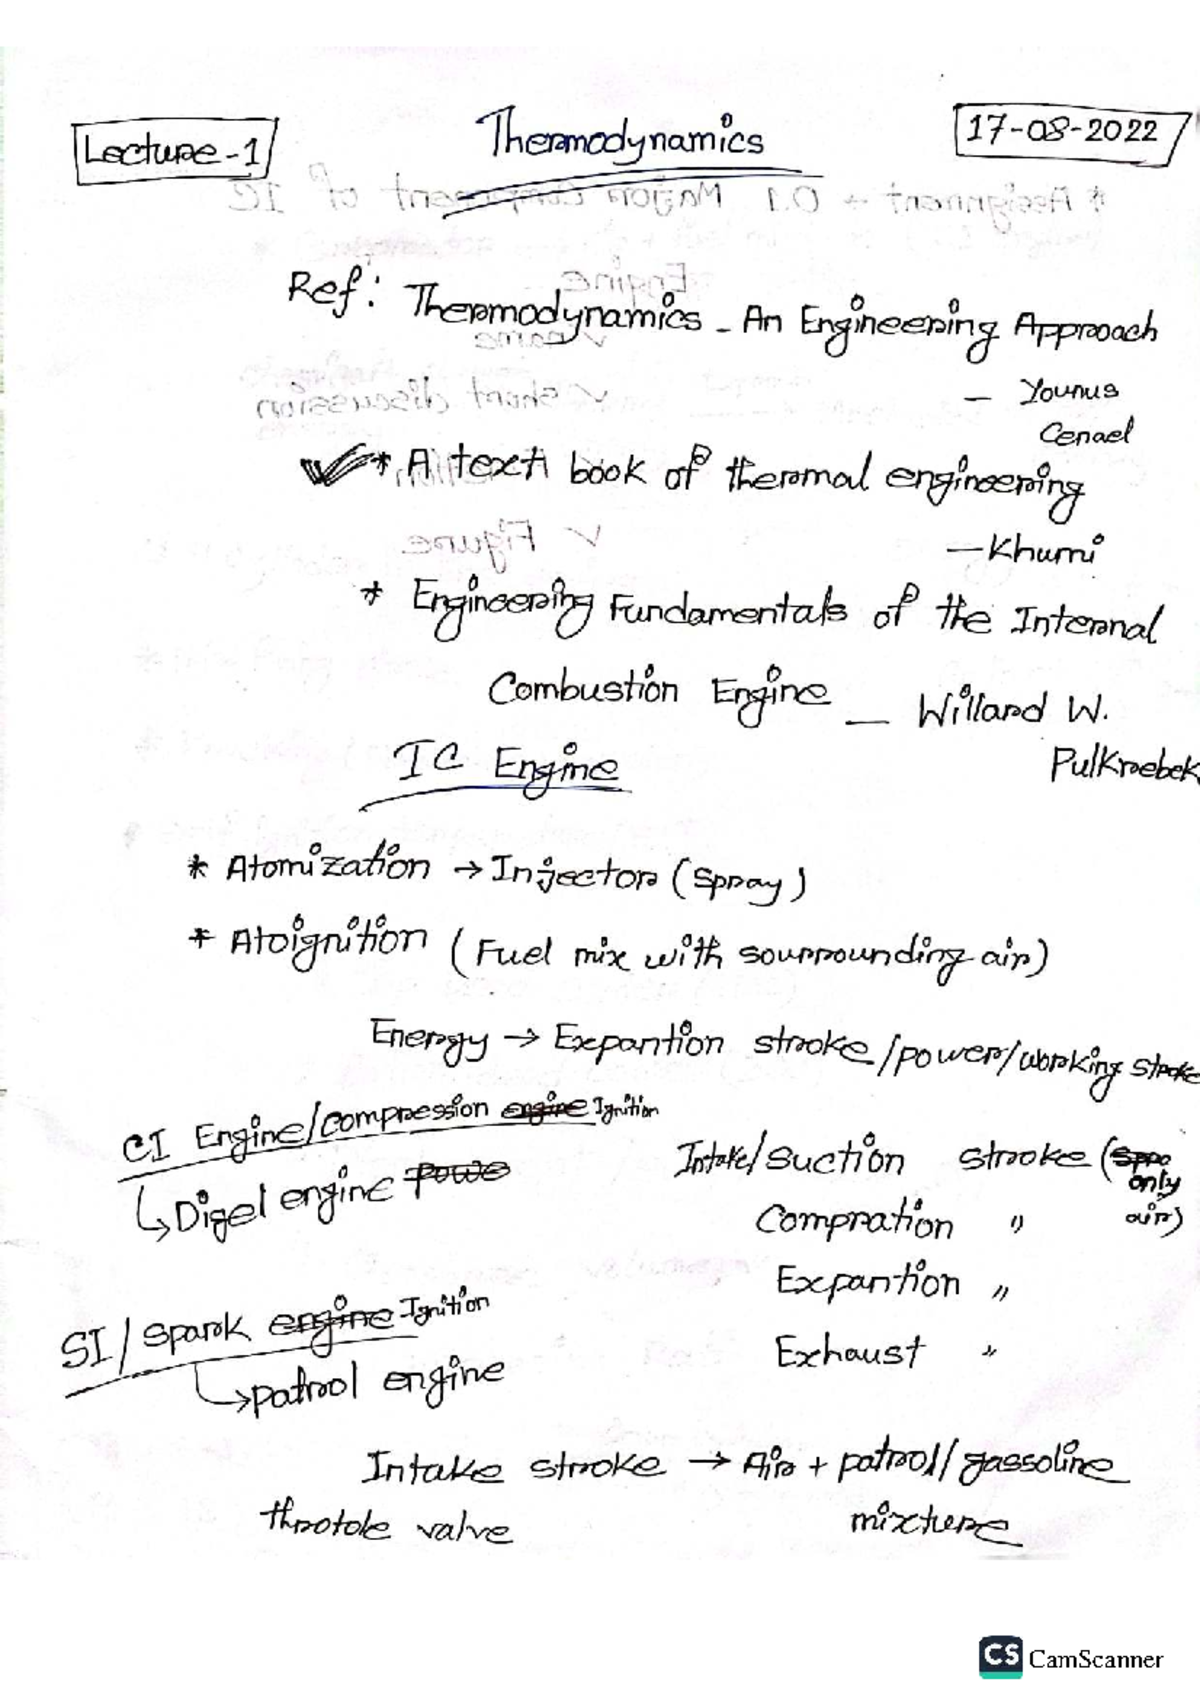 Lecture-1
Thermodynamics
17-08-2022
Ref: Thermodynamics - An Engineering Approach
- Younus
Cenael
* A text book of thermal engineering
- Khumi
* Engineering Fundamentals of the Internal
Combustion Engine - Willard W.
Pulkrebek
IC Engine
* Atomization → Injector (spray)
* Atoignition (Fuel mix with sourrounding air)
Energy → Expantion stroke/power/working stroke
CI Engine/compression engine Ignition
↳ Digel engine powe
Intake/suction stroke (
only
air)
Compration "
Expantion "
Exhaust "
SI/spark engine Ignition
↳ patrol engine
Intake stroke → Air + patrol/gassoline
mixture
throtole valve
CS CamScanner